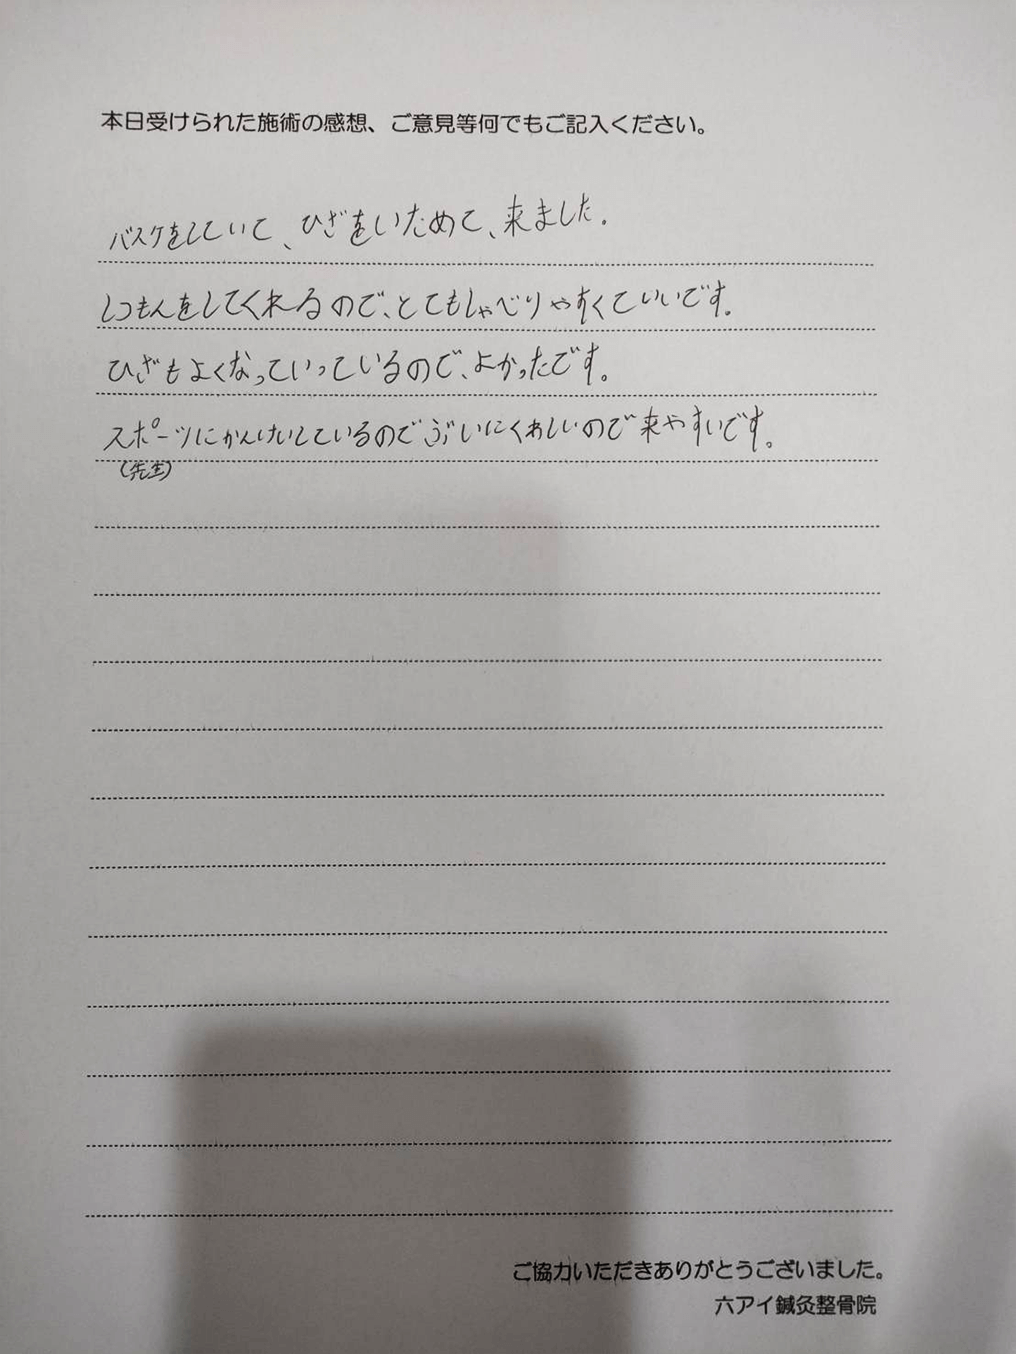 本日受けられた施術の感想、ご意見等何でもご記入ください。
バスケをしていて、ひざをいためて、来ました。
しつもんをしてくれるので、とてもしゃべりやすくていいです。
ひざもよくなっていっているので、よかったです。
スポーツにかんけいしているのでぶいにくわしいので来やすいです。
(先生)
ご協力いただきありがとうございました。
六アイ鍼灸整骨院